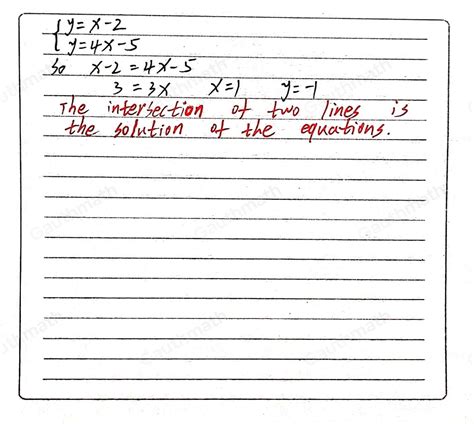 { y = x - 2
y = 4x - 5
So x - 2 = 4x - 5
3 = 3x x = 1 y = -1
The intersection of two lines is
the solution of the equations.
Gauthmath
Gauthmath
Gauthmath
Gauthmath